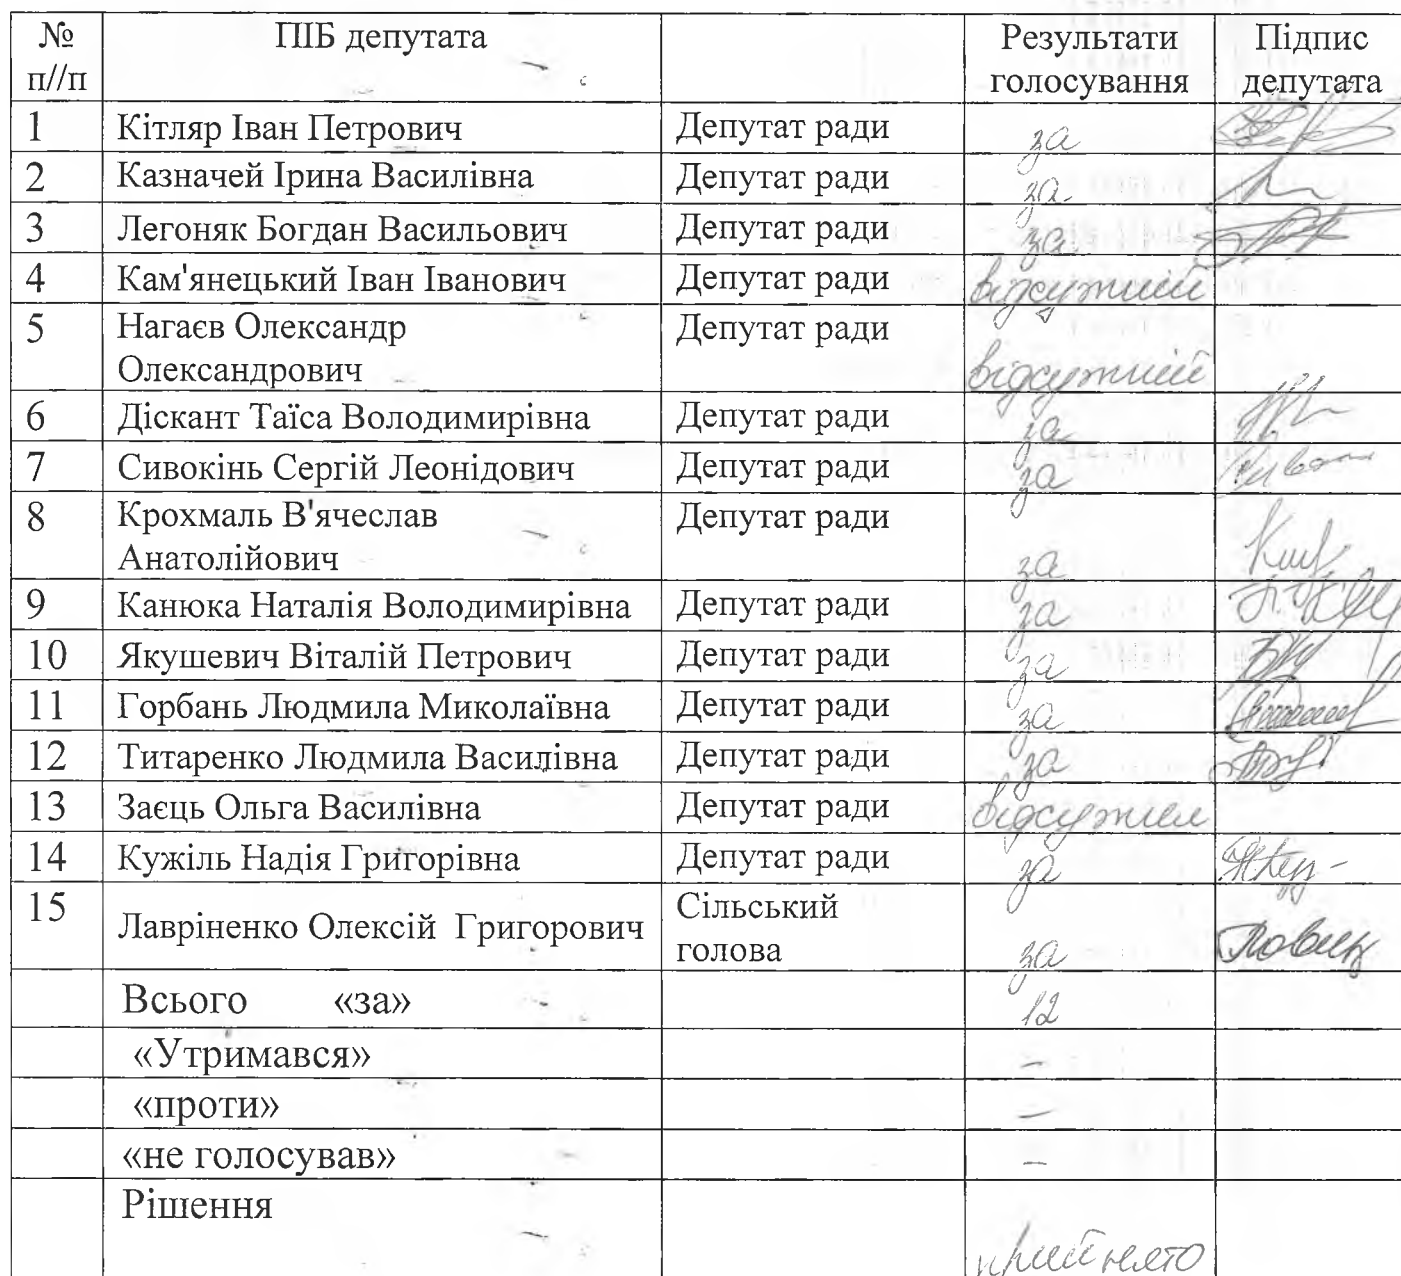 № ПІБ депутата Результати Підпис
п//п голосування депутата
1 Кітляр Іван Петрович Депутат ради за
2 Казначей Ірина Василівна Депутат ради за
3 Легоняк Богдан Васильович Депутат ради за
4 Кам'янецький Іван Іванович Депутат ради відсутній
5 Нагаєв Олександр Депутат ради
Олександрович відсутній
6 Діскант Таїса Володимирівна Депутат ради за
7 Сивокінь Сергій Леонідович Депутат ради за
8 Крохмаль В'ячеслав Депутат ради
Анатолійович за
9 Канюка Наталія Володимирівна Депутат ради за
10 Якушевич Віталій Петрович Депутат ради за
11 Горбань Людмила Миколаївна Депутат ради за
12 Титаренко Людмила Василівна Депутат ради за
13 Заєць Ольга Василівна Депутат ради
14 Кужіль Надія Григорівна Депутат ради за
15 Лавріненко Олексій Григорович Сільський
голова за
Всього «за» 12
«Утримався» –
«проти» –
«не голосував» –
Рішення
прийнято